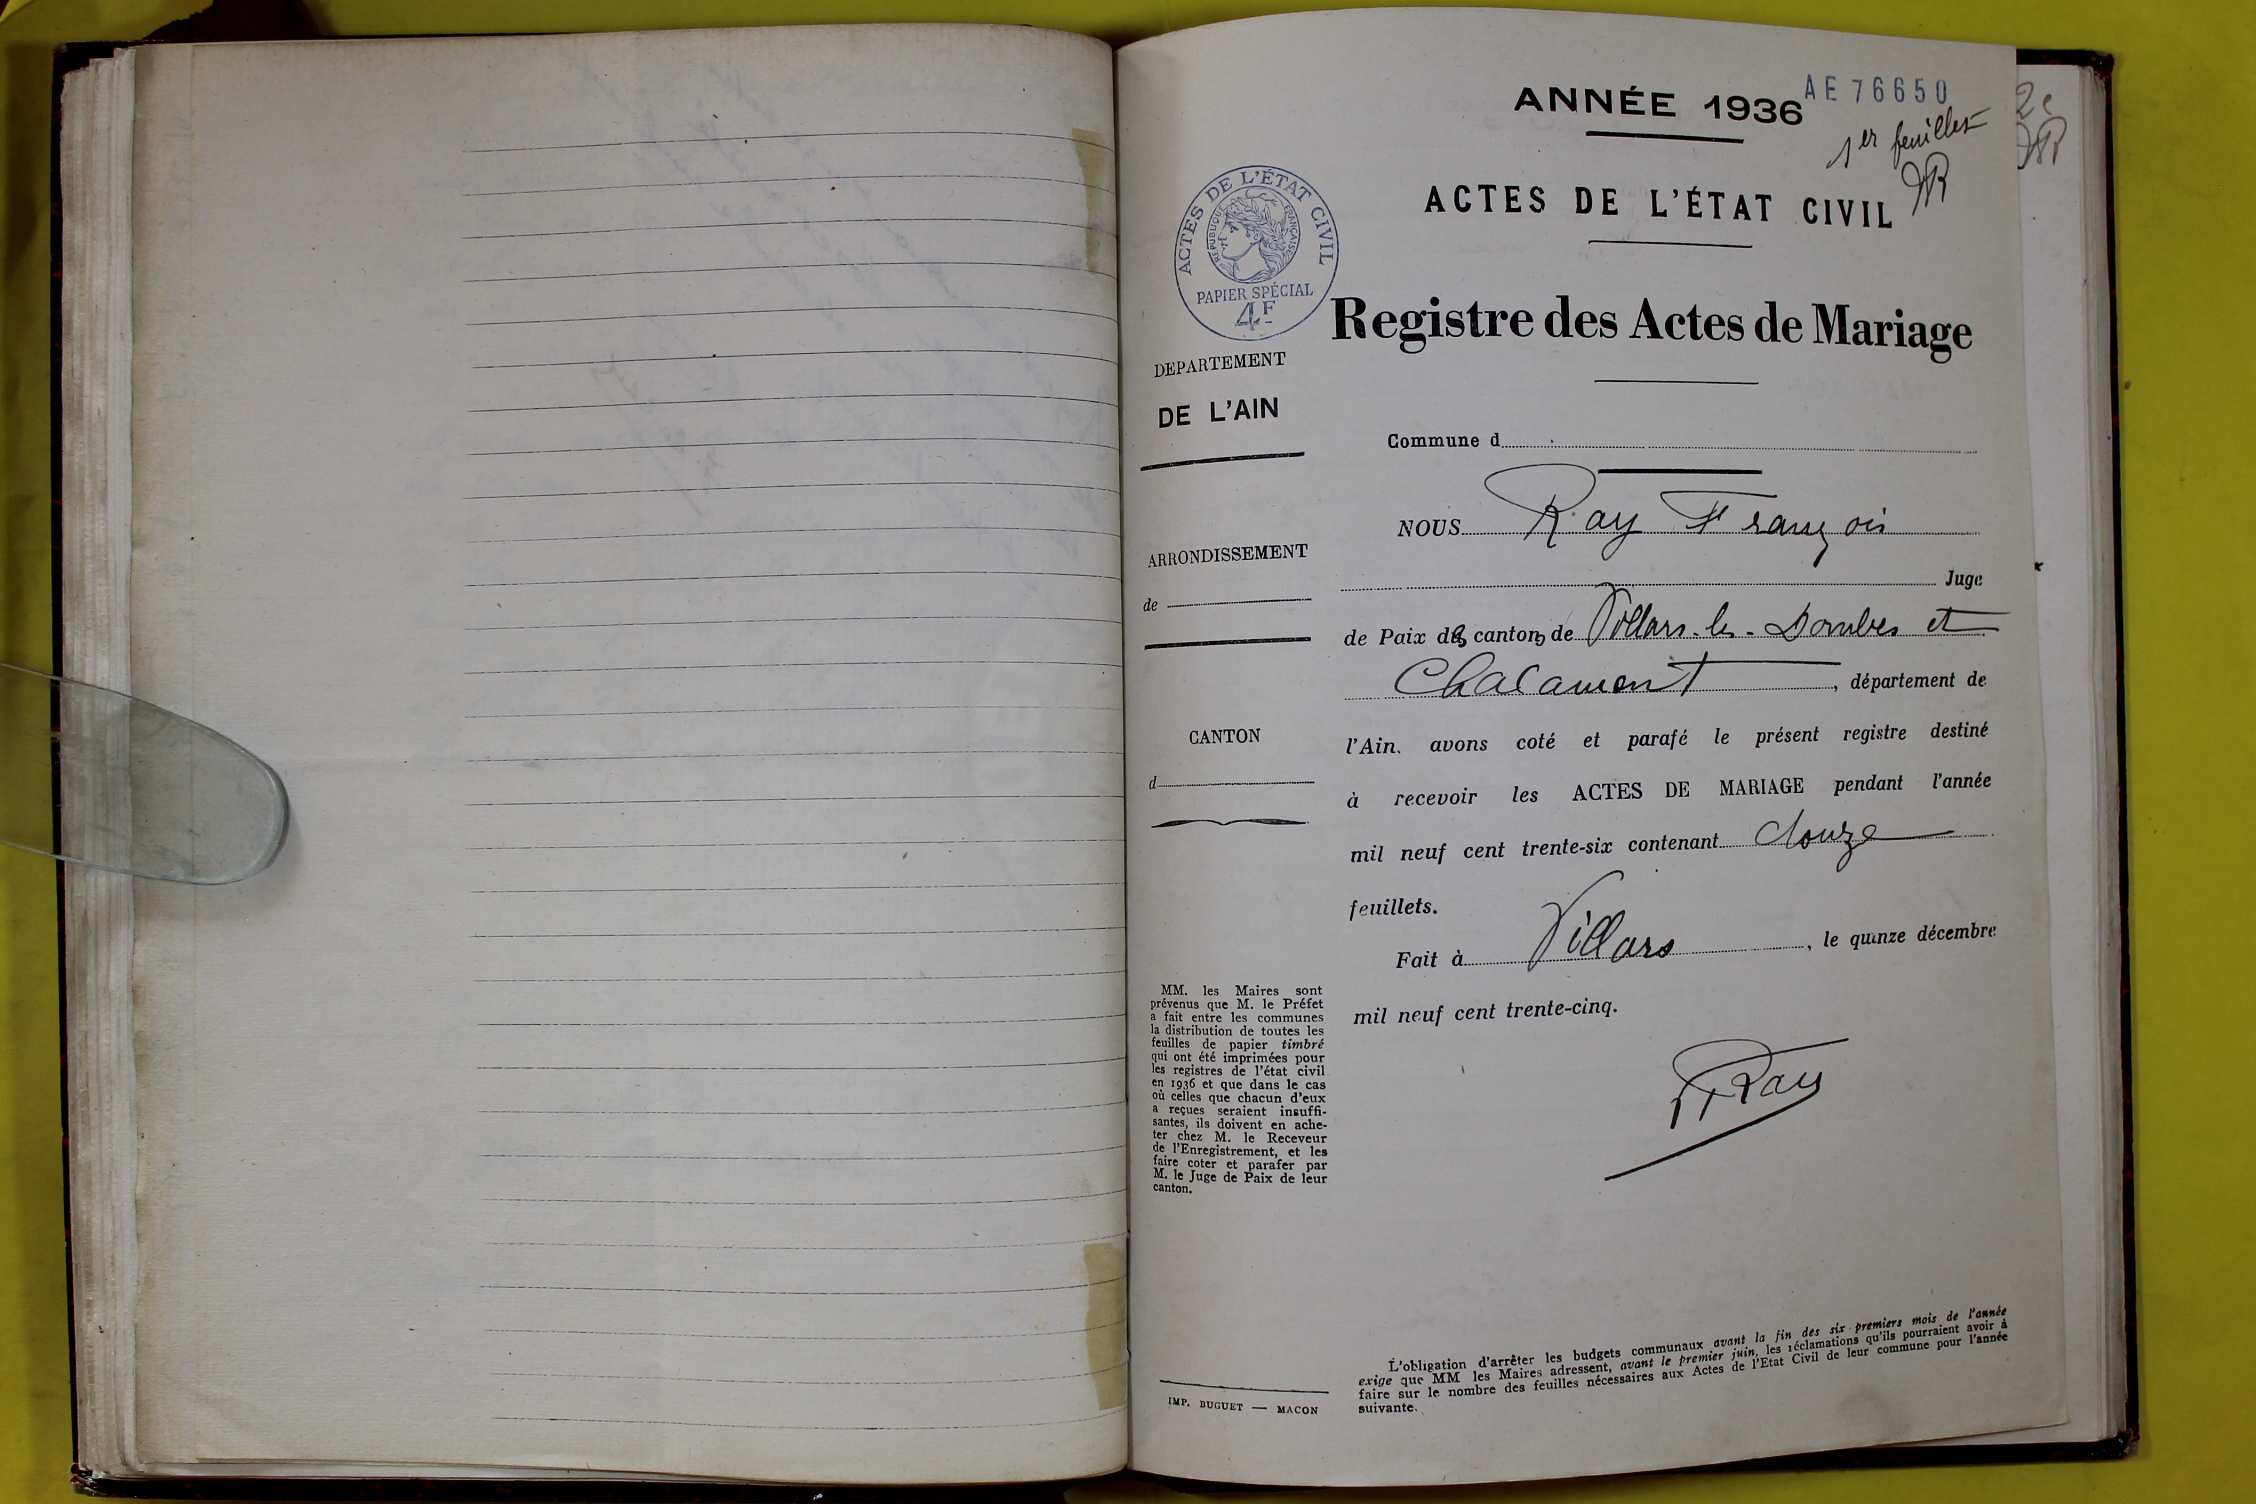 ANNÉE 1936
AE 76650
1er feuillet
2e
ACTES DE L'ÉTAT CIVIL
ACTES DE L'ÉTAT CIVIL
RÉPUBLIQUE FRANÇAISE
PAPIER SPÉCIAL
4F
Registre des Actes de Mariage
DEPARTEMENT
DE L'AIN
ARRONDISSEMENT
de
CANTON
d
MM. les Maires sont
prévenus que M. le Préfet
a fait entre les communes
la distribution de toutes les
feuilles de papier timbré
qui ont été imprimées pour
les registres de l'état civil
en 1936 et que dans le cas
où celles que chacun d'eux
a reçues seraient insuffi-
santes, ils doivent en ache-
ter chez M. le Receveur
de l'Enregistrement, et les
faire coter et parafer par
M. le Juge de Paix de leur
canton.
IMP. BUGUET — MACON
Commune d
NOUS Ray François
Juge
de Paix des cantons de Villars-les-Dombes et
Chalamont, département de
l'Ain. avons coté et parafé le présent registre destiné
à recevoir les ACTES DE MARIAGE pendant l'année
mil neuf cent trente-six contenant douze
feuillets.
Fait à Villars, le quinze décembre
mil neuf cent trente-cinq.
Ray
L'obligation d'arrêter les budgets communaux avant la fin des six premiers mois de l'année
exige que MM les Maires adressent, avant le premier juin, les réclamations qu'ils pourraient avoir à
faire sur le nombre des feuilles nécessaires aux Actes de l'Etat Civil de leur commune pour l'année
suivante.